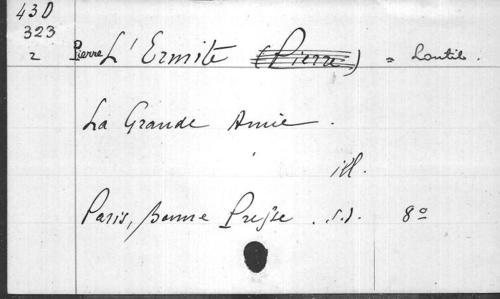 43D
323
2
Pierre L'Ermite (Pierre) = Loutil.
La Grande Amie.
ill.
Paris, Bonne Presse. s.d. 8º